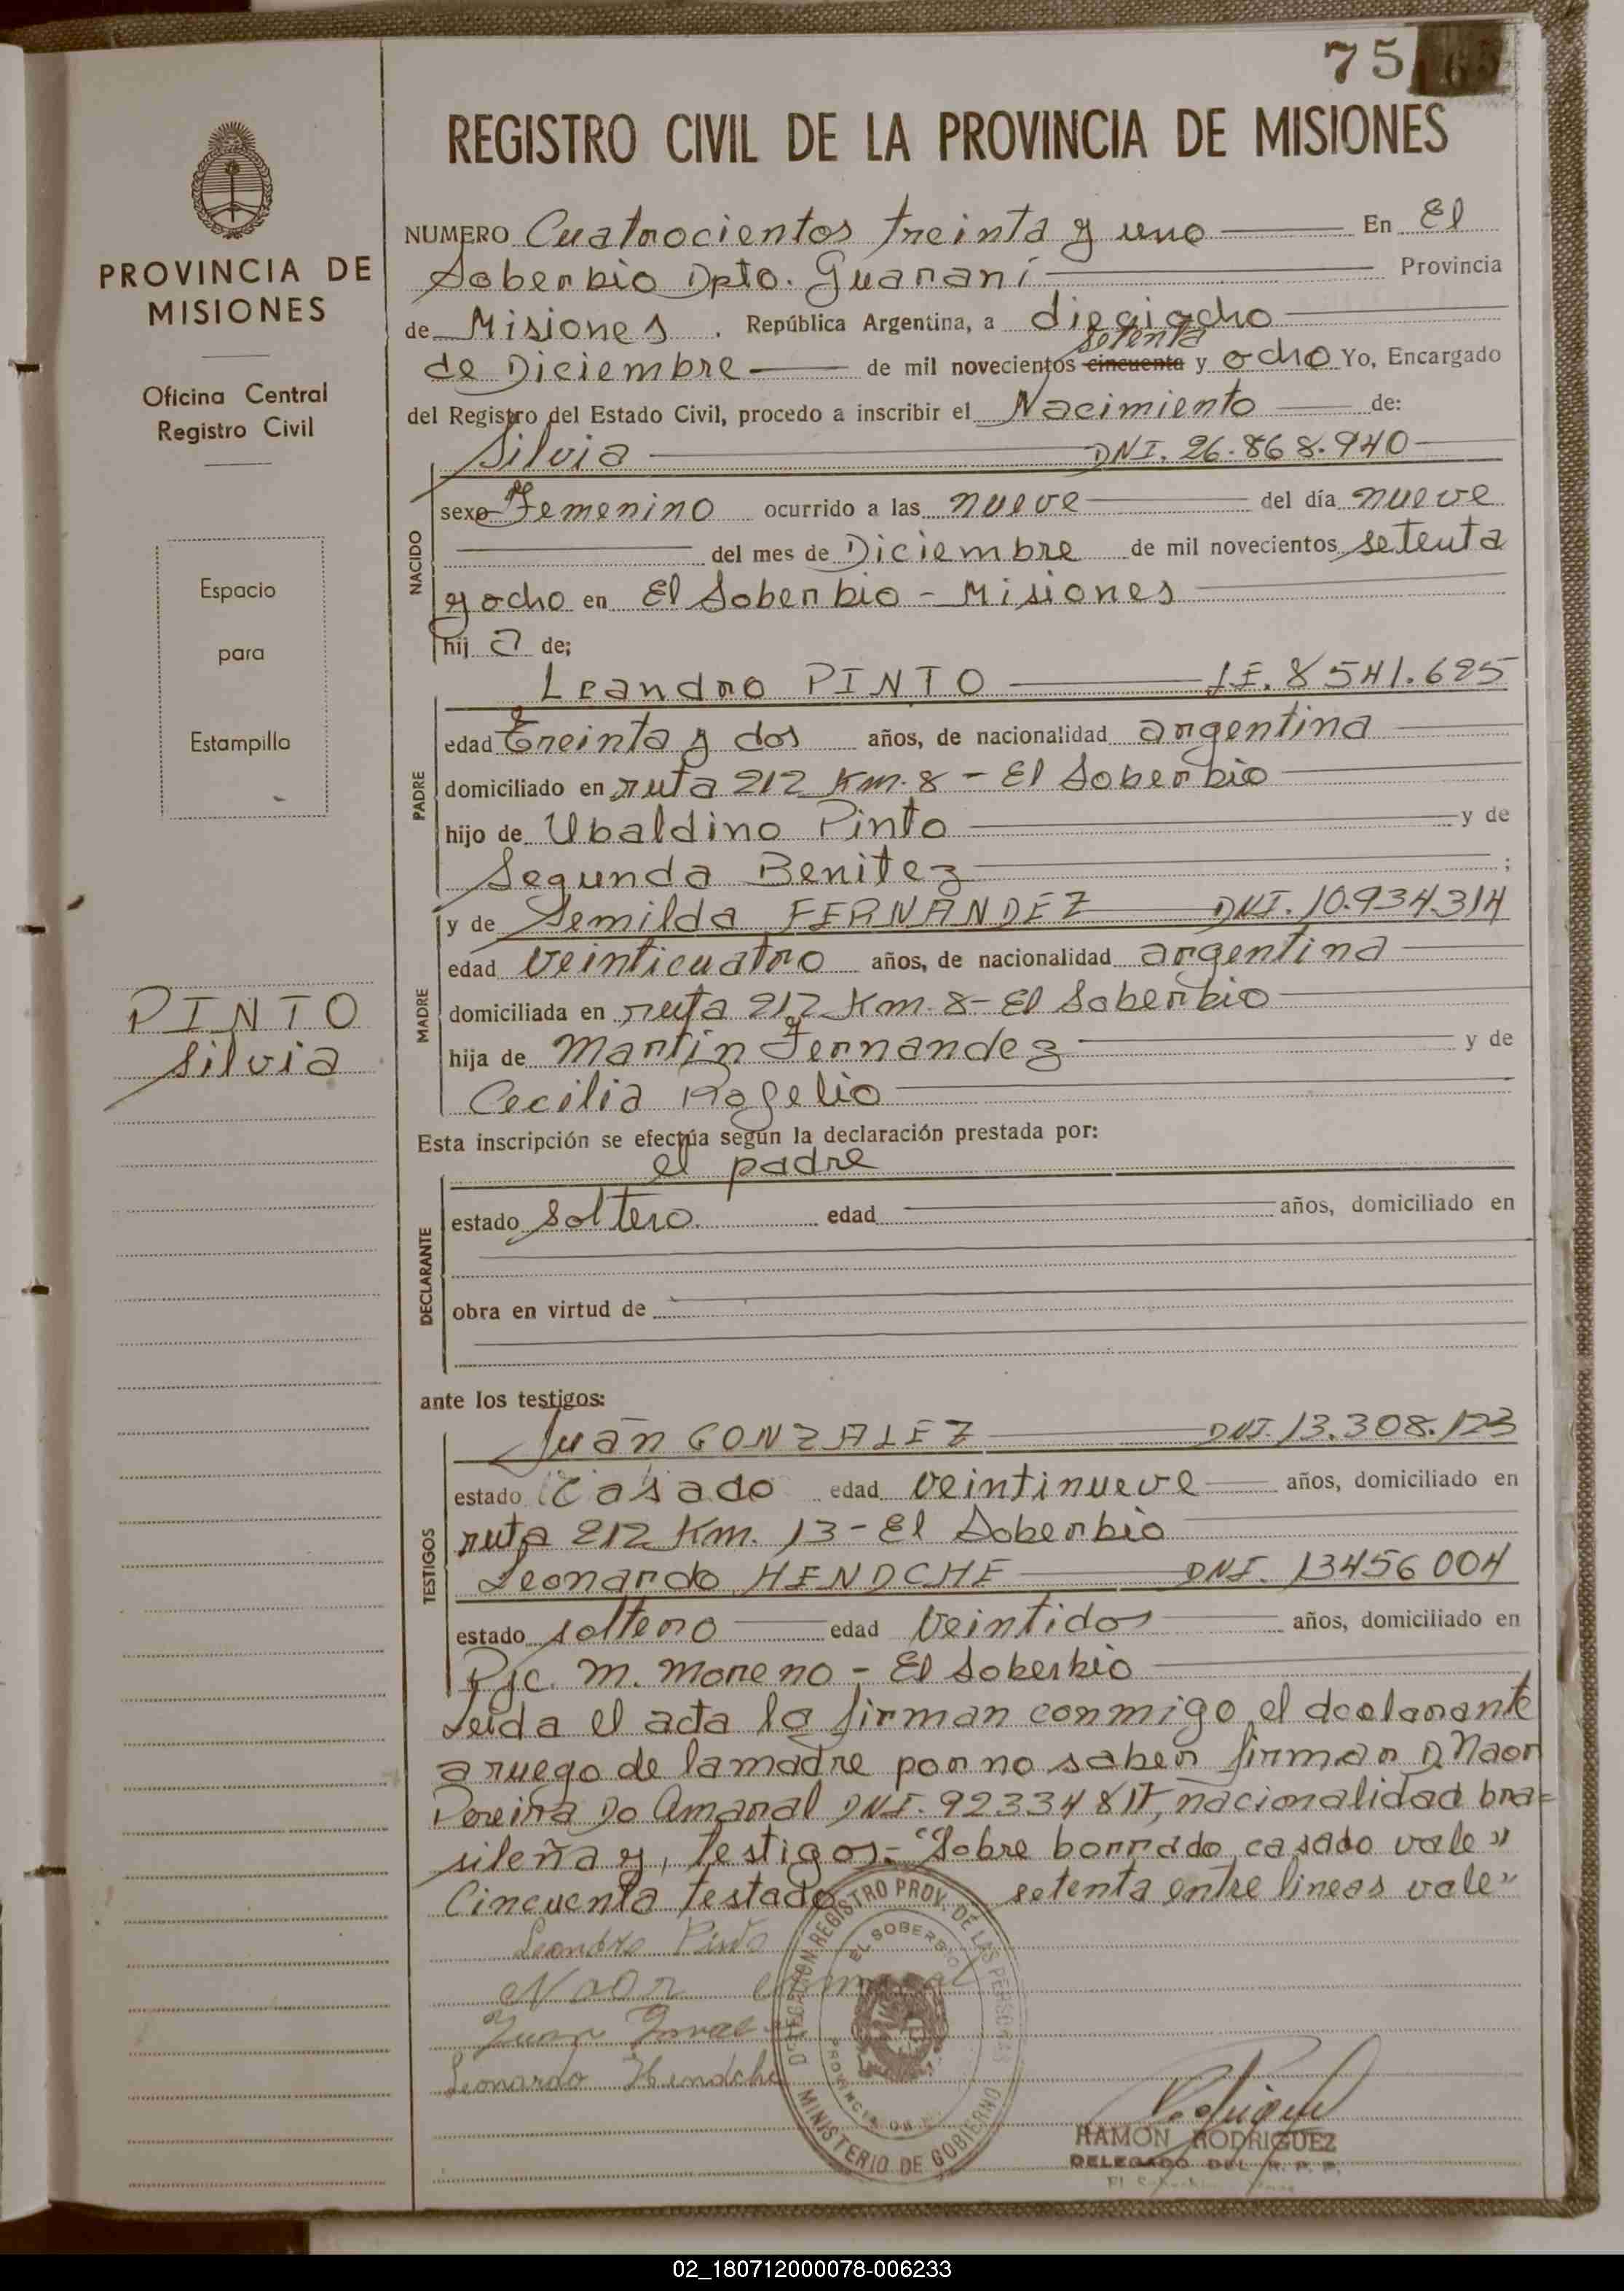 75
REGISTRO CIVIL DE LA PROVINCIA DE MISIONES
PROVINCIA DE
MISIONES
Oficina Central
Registro Civil
Espacio
para
Estampilla
PINTO
Silvia
NUMERO Cuatrocientos treinta y uno En El
Soberbio Dpto. Guaraní Provincia
de Misiones . República Argentina, a dieciocho
setenta
de Diciembre de mil novecientos cincuenta y ocho Yo, Encargado
del Registro del Estado Civil, procedo a inscribir el Nacimiento de:
Silvia DNI. 26.868.940
NACIDO
sexo Femenino ocurrido a las nueve del día nueve
del mes de Diciembre de mil novecientos setenta
y ocho en El Soberbio - Misiones
hij a de;
Leandro PINTO LE. 8541.695
PADRE
edad treinta y dos años, de nacionalidad argentina
domiciliado en ruta 212 Km. 8 - El Soberbio
hijo de Ubaldino Pinto y de
Segunda Benitez ;
y de Semilda FERNANDEZ DNI. 10.934.314
MADRE
edad veinticuatro años, de nacionalidad argentina
domiciliada en ruta 212 Km. 8 - El Soberbio
hija de Martin Fernandez y de
Cecilia Rogelio
Esta inscripción se efectúa según la declaración prestada por:
el padre
DECLARANTE
estado soltero edad años, domiciliado en
obra en virtud de
ante los testigos:
Juan GONZALEZ DNI. 13.308.123
TESTIGOS
estado casado edad veintinueve años, domiciliado en
ruta 212 Km. 13 - El Soberbio
Leonardo HENDCHE DNI. 13456004
estado soltero edad veintidos años, domiciliado en
Pje. M. Moreno - El Soberbio
Leida el acta la firman conmigo el declarante
a ruego de la madre por no saber firmar D. Naor
Pereira Do Amaral DNI. nacionalidad bra=
sileña y, testigos.- "Sobre borrado casado vale"
Cincuenta testado setenta entre lineas vale"
Leandro Pinto
Naor Amaral
Juan
Leonardo Hendche
DELEGACION REGISTRO PROV. DE LAS PERSONAS
EL SOBERBIO
PROVINCIA DE
MINISTERIO DE GOBIERNO
RAMON RODRIGUEZ
DELEGADO DEL R. P. P.
02_180712000078-006233